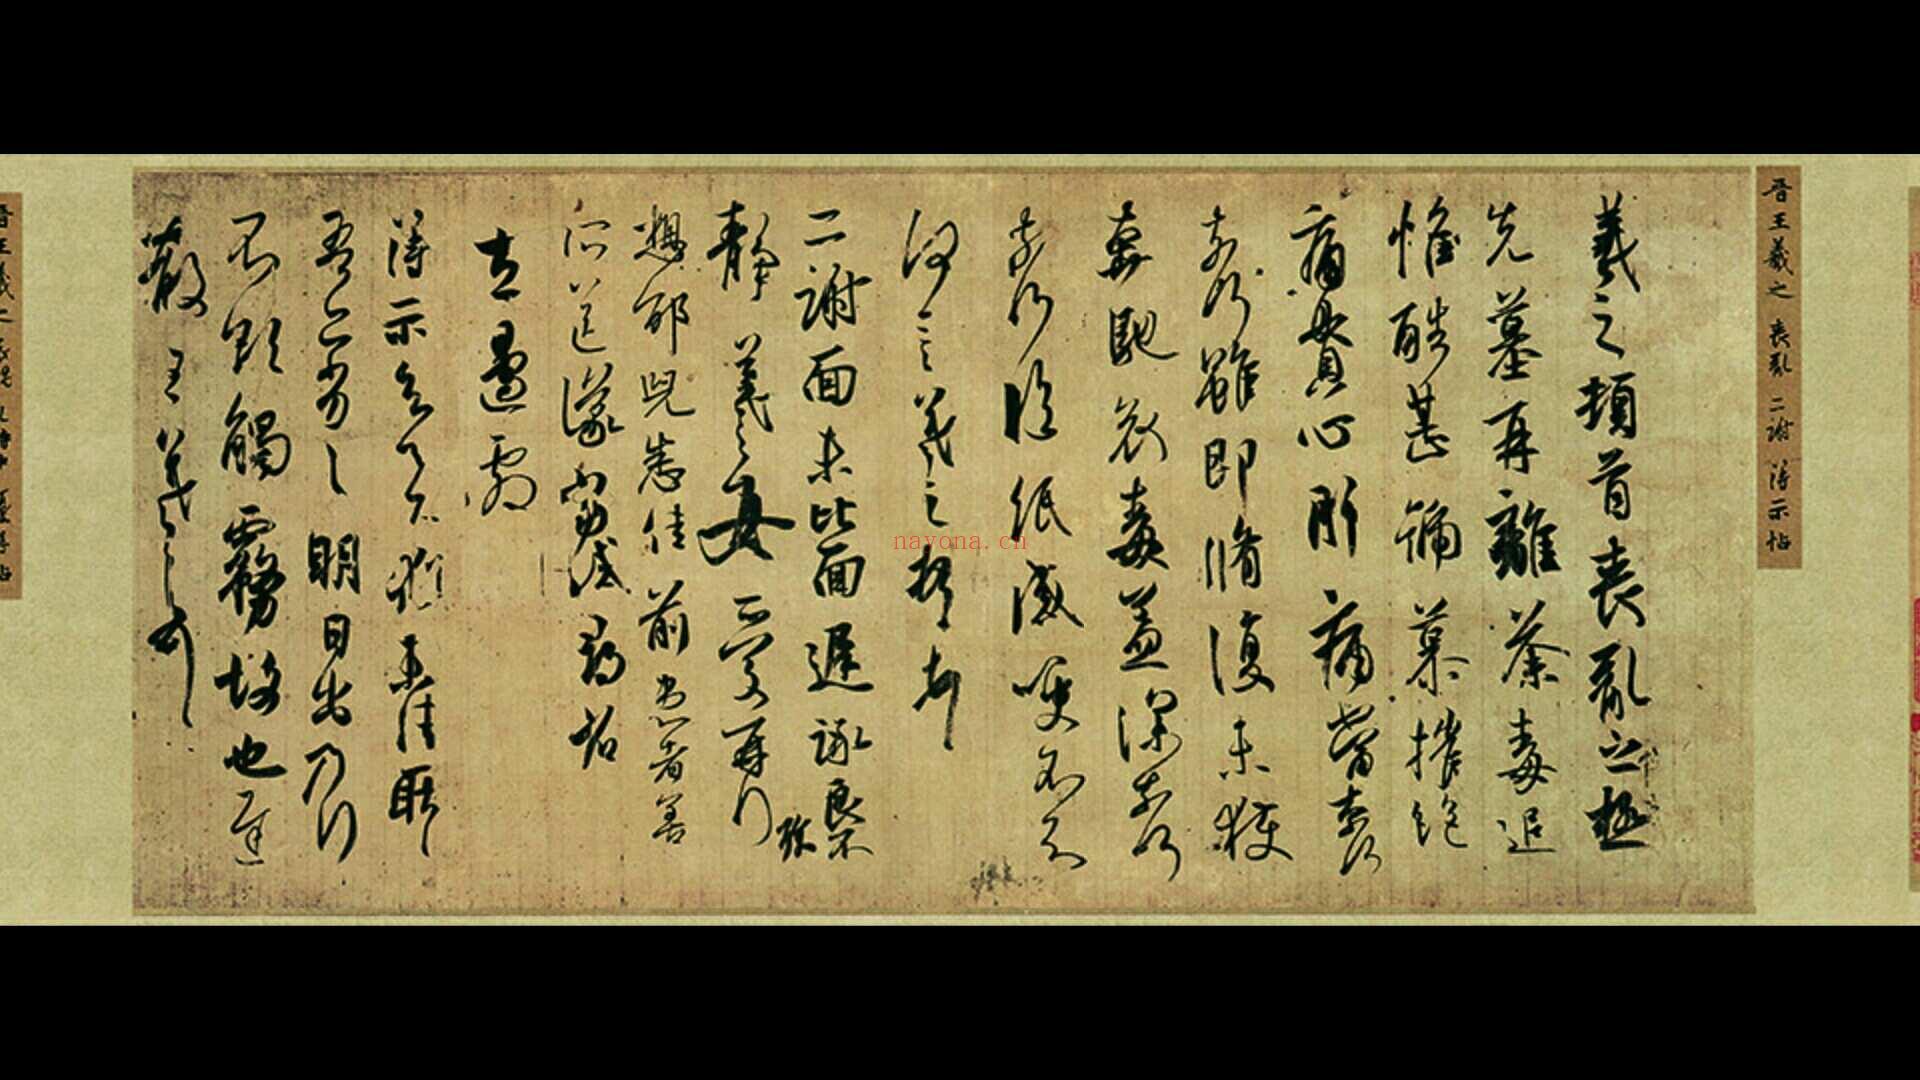 晋王羲之 喪亂 二謝 得示帖
羲之頓首喪亂之極
先墓再離荼毒追
惟酷甚號慕摧絶
痛貫心肝痛當奈何
奈何雖即脩復未獲
奔馳哀毒益深奈何
奈何臨紙感哽不知
何言羲之頓首頓首
二謝面未比面遲詠良不
静羲之女愛愛再拜
想邰兒悉佳前患者善
所送議當試尋省
左邊劇
得示知足下猶未佳耿耿
吾亦劣劣明日出乃行
不欲觸霧故也遲
散王羲之頓首
nayona.cn